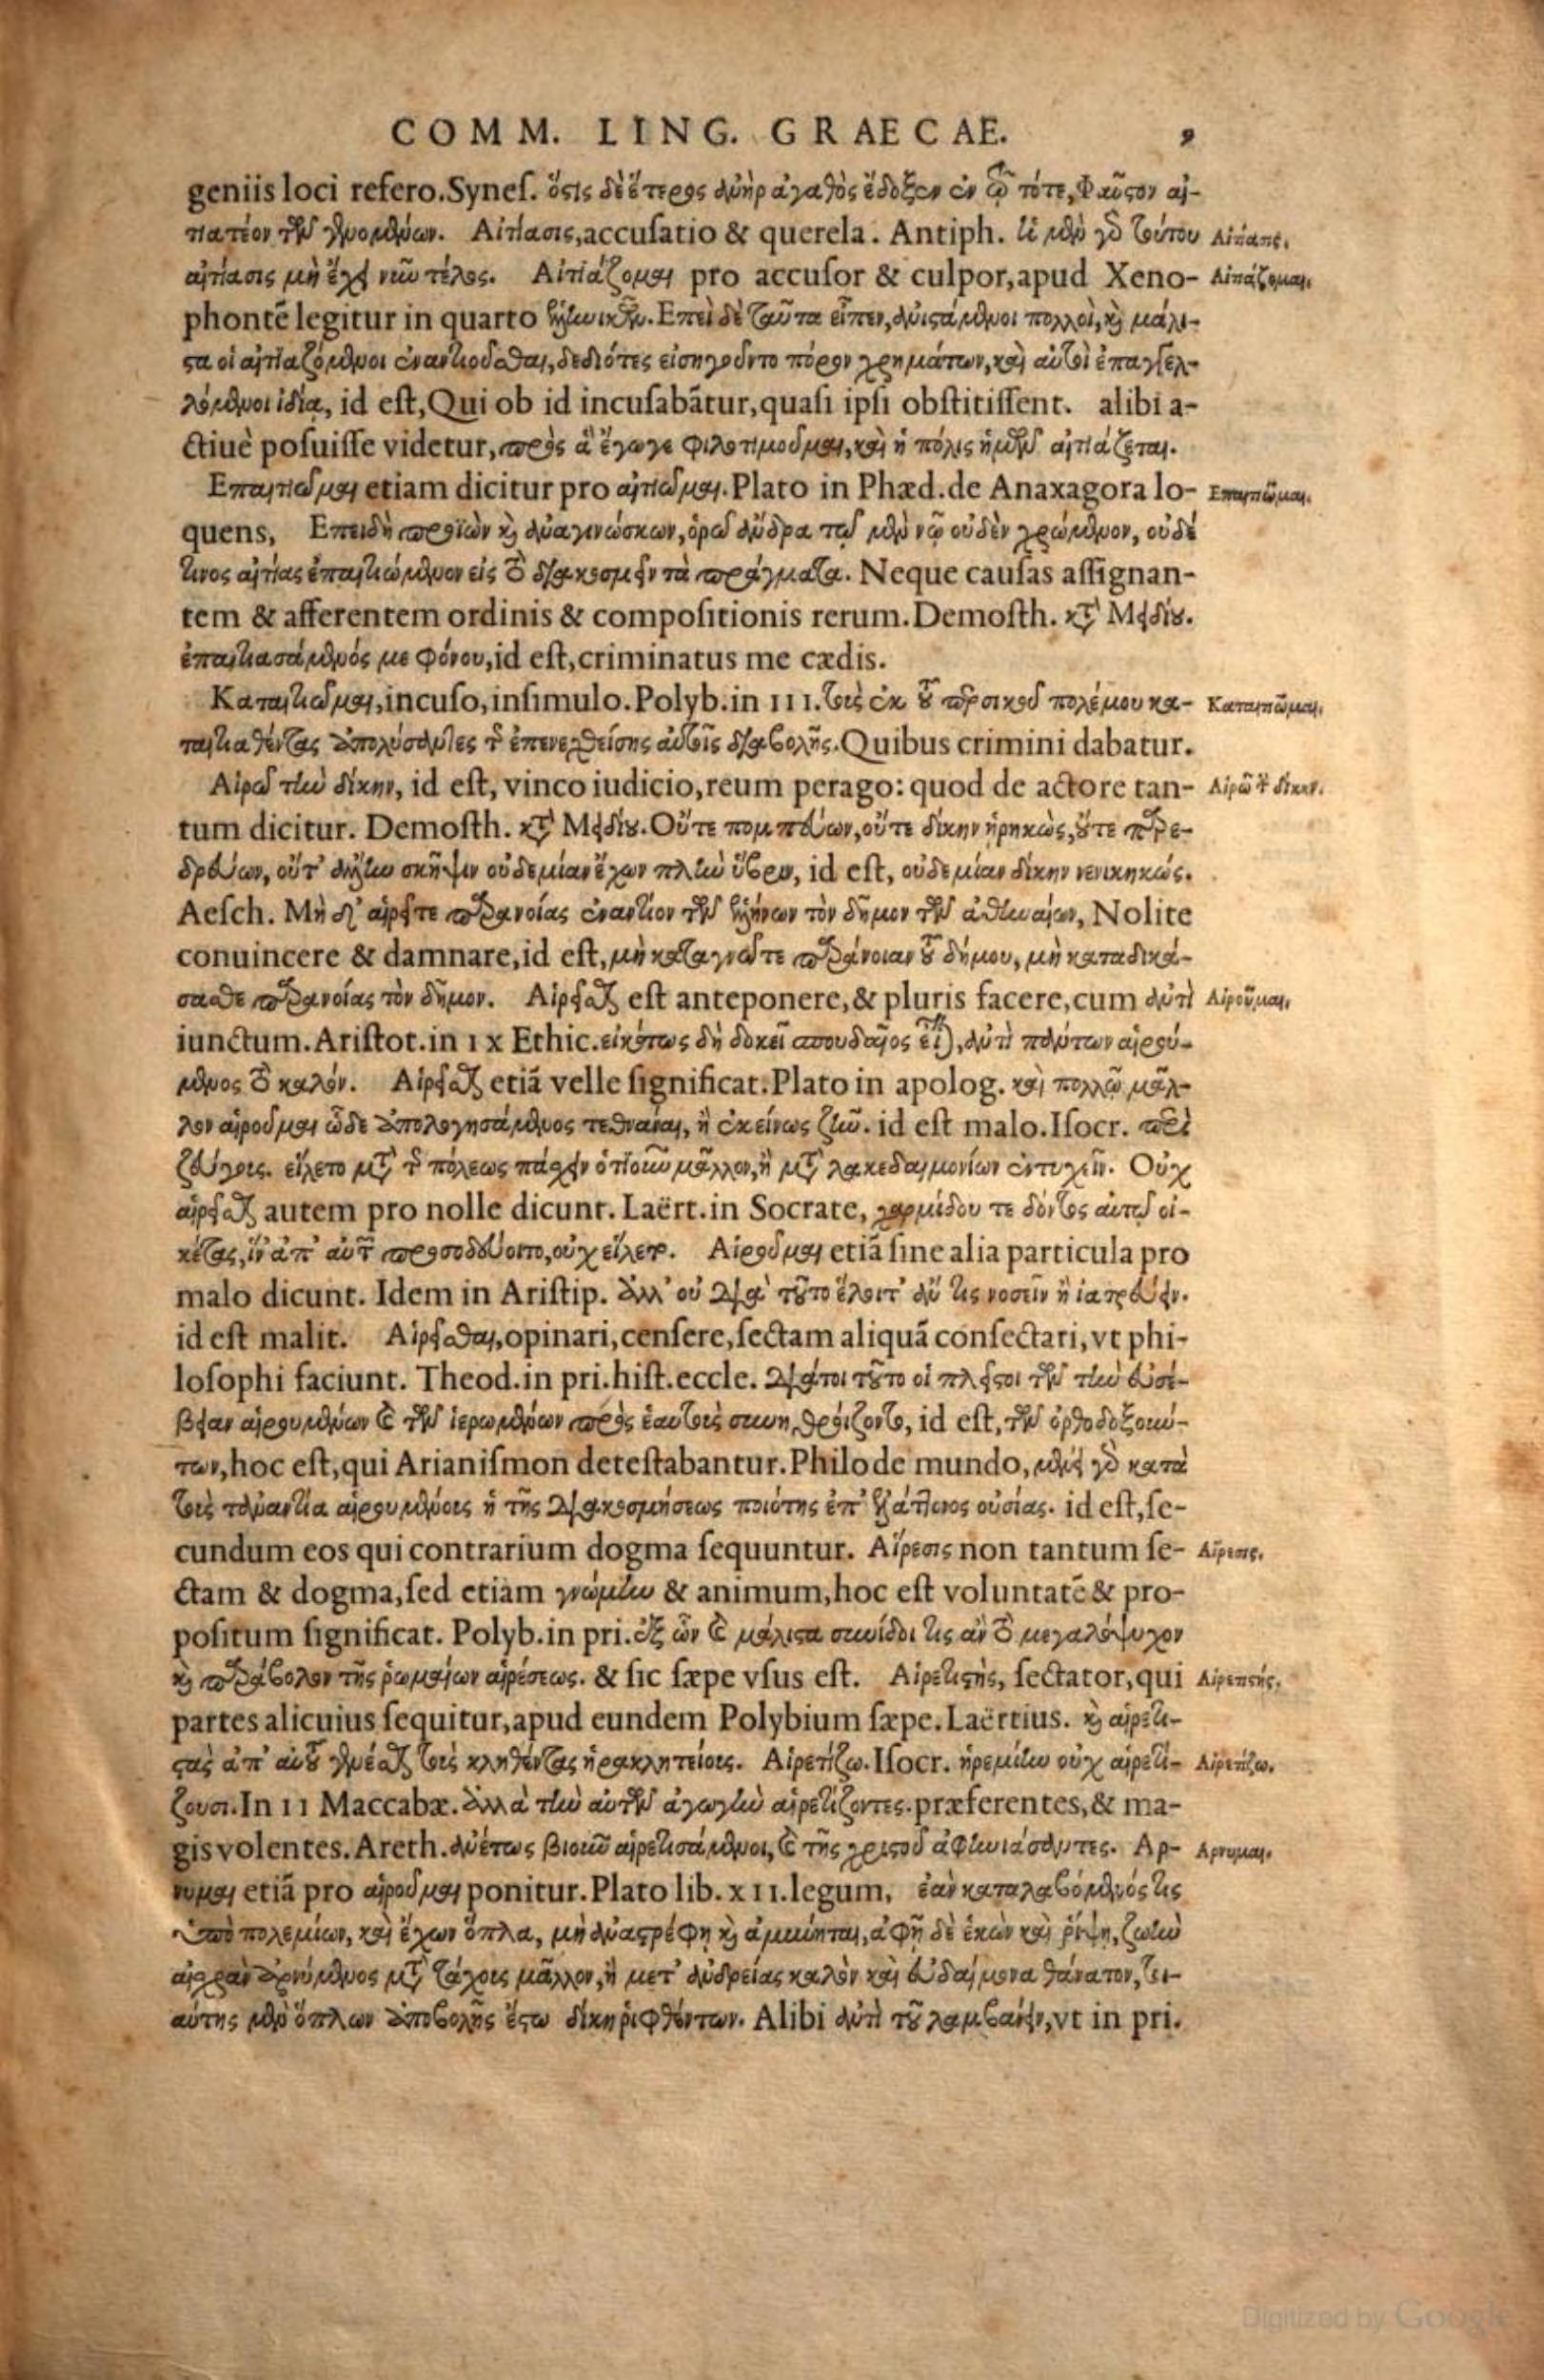 COMM. LING. GRAECAE. 9
geniis loci refero. Synes. ὅστις δὲ ἕτερος ἀνὴρ ἀγαθὸς ἔδοξεν ἐν τῷ τότε, Φαῦστον αἰ-
τιατέον τῶν γενομένων. Αἰτίασις, accusatio & querela. Antiph. εἰ μὲν γὸ τούτου Αἰτίασις.
αἰτίασις μὴ ἔχει νῦν τέλος. Αἰτιάζομαι pro accusor & culpor, apud Xeno- Αἰτιάζομαι.
phontē legitur in quarto ἑλληνικῶν. Επεὶ δὲ ταῦτα εἶπεν, ἀνιστάμενοι πολλοὶ, καὶ μάλι-
στα οἱ αἰτιαζόμενοι ἐναντιοῦσθαι, δεδιότες εἰσηγοῦντο πόρον χρημάτων, καὶ αὐτοὶ ἐπαγγελ-
λόμενοι ἰδία, id est, Qui ob id incusabātur, quasi ipsi obstitissent. alibi a-
ctiuè posuisse videtur, πρὸς ἃ ἔγωγε φιλοτιμοῦμαι, καὶ ἡ πόλις ἡμῶν αἰτιάζεται.
Επαιτιῶμαι etiam dicitur pro αἰτιῶμαι. Plato in Phæd. de Anaxagora lo- Επαιτιῶμαι.
quens, Επειδὴ προϊὼν καὶ ἀναγινώσκων, ὁρῶ ἄνδρα τῷ μὲν νῷ οὐδὲν χρώμενον, οὐδέ
τινος αἰτίας ἐπαιτιώμενον εἰς τὸ διακοσμεῖν τὰ πράγματα. Neque causas assignan-
tem & afferentem ordinis & compositionis rerum. Demosth. κατὰ Μειδίου.
ἐπαιτιασάμενός με φόνου, id est, criminatus me cædis.
Καταιτιῶμαι, incuso, insimulo. Polyb. in III. τοὺς ἐκ τοῦ περσικοῦ πολέμου κα- Καταιτιῶμαι.
ταιτιαθέντας ἀπολύσαντες τῆς ἐπενεχθείσης αὐτοῖς διαβολῆς. Quibus crimini dabatur.
Αἱρῶ τὴν δίκην, id est, vinco iudicio, reum perago: quod de actore tan- Αἱρῶ τὴν δίκην.
tum dicitur. Demosth. κατὰ Μειδίου. Οὔτε πομπεύων, οὔτε δίκην ᾑρηκὼς, οὔτε παρε-
δρεύων, οὔτ' ἄλλην σκῆψιν οὐδεμίαν ἔχων πλὴν ὕβριν, id est, οὐδεμίαν δίκην νενικηκώς.
Aesch. Μὴ δ' αἱρεῖτε παρανοίας ἐναντίον τῶν ἑλλήνων τὸν δῆμον τῶν ἀθηναίων, Nolite
conuincere & damnare, id est, μὴ καταγνῶτε παράνοιαν τοῦ δήμου, μὴ καταδικά-
σασθε παρανοίας τὸν δῆμον. Αἱρεῖσθαι est anteponere, & pluris facere, cum ἀντὶ Αἱροῦμαι.
iunctum. Aristot. in IX Ethic. εἰκότως δὴ δοκεῖ σπουδαῖος εἶναι, ἀντὶ πάντων αἱρού-
μενος τὸ καλόν. Αἱρεῖσθαι etiā velle significat. Plato in apolog. καὶ πολλῷ μᾶλ-
λον αἱροῦμαι ὧδε ἀπολογησάμενος τεθνάναι, ἢ ἐκείνως ζῆν. id est malo. Isocr. περὶ
ζεύγους. εἵλετο μετὰ τῆς πόλεως πάσχειν ὁτιοῦν μᾶλλον, ἢ μετὰ λακεδαιμονίων εὐτυχεῖν. Οὐχ
αἱρεῖσθαι autem pro nolle dicunt. Laërt. in Socrate, χαρμίδου τε δόντος αὐτῷ οἰ-
κέτας, ἵν' ἀπ' αὐτῶν προσοδεύοιτο, οὐχ εἵλετο. Αἱροῦμαι etiā sine alia particula pro
malo dicunt. Idem in Aristip. ἀλλ' οὐ διὰ τοῦτο ἕλοιτ' ἄν τις νοσεῖν ἢ ἰατρεύειν.
id est malit. Αἱρεῖσθαι, opinari, censere, sectam aliquā consectari, vt phi-
losophi faciunt. Theod. in pri. hist. eccle. διάτοι τοῦτο οἱ πλεῖστοι τῶν τὴν εὐσέ-
βειαν αἱρουμένων καὶ τῶν ἱερωμένων πρὸς ἑαυτοὺς συνηθροίζοντο, id est, τῶν ὀρθοδοξούν-
των, hoc est, qui Arianismon detestabantur. Philo de mundo, μένει γὸ κατὰ
τοὺς τἀναντία αἱρουμένους ἡ τῆς διακοσμήσεως ποιότης ἐπ' ἐλάττονος οὐσίας. id est, se-
cundum eos qui contrarium dogma sequuntur. Αἵρεσις non tantum se- Αἵρεσις.
ctam & dogma, sed etiam γνώμην & animum, hoc est voluntatē & pro-
positum significat. Polyb. in pri. ἐξ ὧν καὶ μάλιστα συνίδοι τις ἂν τὸ μεγαλόψυχον
καὶ παράβολον τῆς ῥωμαίων αἱρέσεως. & sic sæpe vsus est. Αἱρετιστὴς, sectator, qui Αἱρετιστής.
partes alicuius sequitur, apud eundem Polybium sæpe. Laërtius. καὶ αἱρετι-
στὰς ἀπ' αὐτοῦ γενέσθαι τοὺς κληθέντας ἡρακλητείους. Αἱρετίζω. Isocr. ἠρεμίην οὐχ αἱρετί- Αἱρετίζω.
ζουσι. In II Maccabæ. ἀλλὰ τὴν αὐτῶν ἀγωγὴν αἱρετίζοντες. præferentes, & ma-
gis volentes. Areth. ἀνέτως βιοῦν αἱρετισάμενοι, καὶ τῆς χριστοῦ ἀφηνιάσαντες. Αρ- Αρνυμαι.
νυμαι etiā pro αἱροῦμαι ponitur. Plato lib. XII. legum, ἐὰν καταλαβόμενός τις
ὑπὸ πολεμίων, καὶ ἔχων ὅπλα, μὴ ἀναστρέφῃ καὶ ἀμύνηται, ἀφῇ δὲ ἑκὼν καὶ ῥίψῃ, ζωὴν
αἰσχρὰν ἀρνύμενος μετὰ τάχους μᾶλλον, ἢ μετ' ἀνδρείας καλὸν καὶ εὐδαίμονα θάνατον, τοι-
αύτης μὲν ὅπλων ἀποβολῆς ἔστω δίκη ῥιφθέντων. Alibi ἀντὶ τοῦ λαμβάνειν, vt in pri.
Digitized by Google